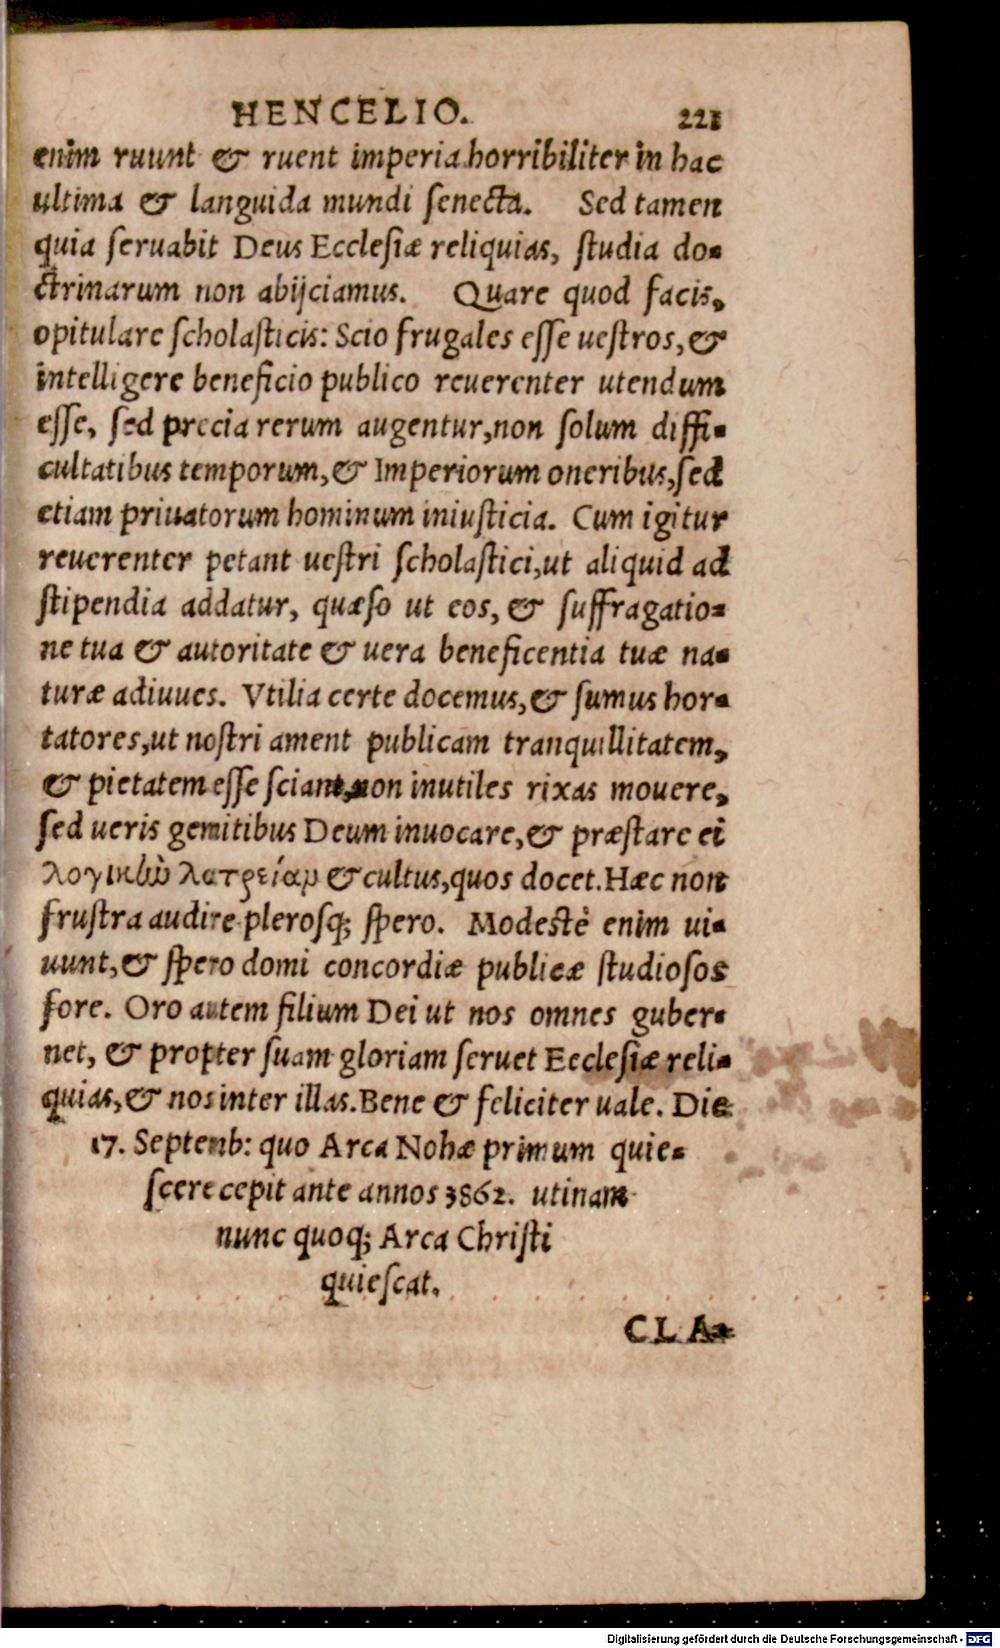 HENCELIO. 221
enim ruunt & ruent imperia horribiliter in hac
ultima & languida mundi ſenecta. Sed tamen
quia ſeruabit Deus Eccleſiæ reliquias, ſtudia do-
ctrinarum non abijciamus. Quare quod facis,
opitulare ſcholaſticis: Scio frugales eſſe ueſtros, &
intelligere beneficio publico reuerenter utendum
eſſe, ſed precia rerum augentur, non ſolum diffi-
cultatibus temporum, & Imperiorum oneribus, ſed
etiam priuatorum hominum iniuſticia. Cum igitur
reuerenter petant ueſtri ſcholaſtici, ut aliquid ad
ſtipendia addatur, quæſo ut eos, & ſuffragatio-
ne tua & autoritate & uera beneficentia tuæ na-
turæ adiuues. Vtilia certe docemus, & ſumus hor-
tatores, ut noſtri ament publicam tranquillitatem,
& pietatem eſſe ſciant, non inutiles rixas mouere,
ſed ueris gemitibus Deum inuocare, & præſtare ei
λογικὴν λατρείαν & cultus, quos docet. Hæc non
fruſtra audire pleroſq; ſpero. Modeſtè enim ui-
uunt, & ſpero domi concordiæ publicæ ſtudioſos
fore. Oro autem filium Dei ut nos omnes guber-
net, & propter ſuam gloriam ſeruet Eccleſiæ reli-
quias, & nos inter illas. Bene & feliciter uale. Die
17. Septemb: quo Arca Nohæ primum quie-
ſcere cepit ante annos 3862. utinam
nunc quoq; Arca Chriſti
quieſcat.
CLA-
Digitalisierung gefördert durch die Deutsche Forschungsgemeinschaft - DFG